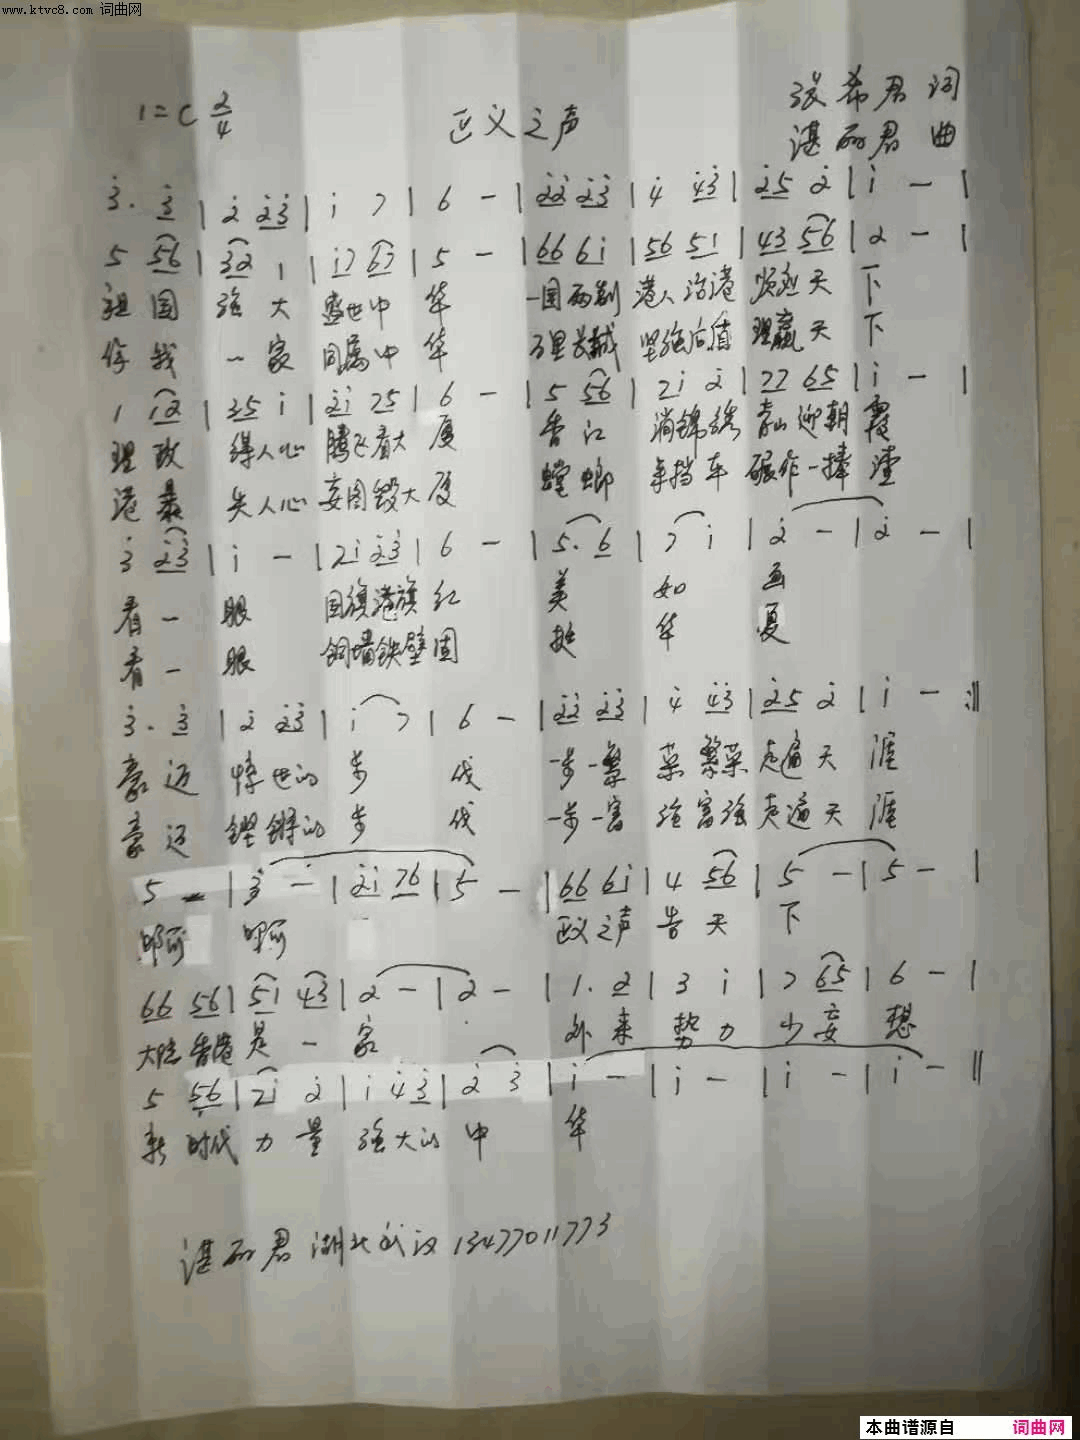 www.ktvc8.com 词曲网
张希君 词
1=C 2/4 正义之声
湛丽君 曲
3̇. 3̇ | 2̇ 2̇3̇ | i 7 | 6 - | 2̇2̇ 2̇3̇ | 4̇ 4̇3̇ | 2̇5 2̇ | i - |
5 56 | 32 1 | i7 67 | 5 - | 66 6i | 56 51 | 43 56 | 2 - |
祖国 强大 盛世中华 一国两制 港人治港 天下
你我 一家 同属中华 万里长城 坚强后盾 理赢天下
1 12 | 35 i | 2̇i 75 | 6 - | 5 56 | 7i 2̇ | 77 65 | i - |
理政 得人心 腾飞着大厦 香江 淌锦绣 青山迎朝霞
港暴 失人心 妄图毁大厦 螳螂 来挡车 碾作一捧渣
3̇ 2̇3̇ | i - | 7i 2̇3̇ | 6 - | 5. 6 | 7 i | 2̇ - | 2̇ - |
看一眼 国旗港旗红 美如画
看一眼 铜墙铁壁固 挺华夏
3̇. 3̇ | 2̇ 2̇3̇ | i 7 | 6 - | 2̇2̇ 2̇3̇ | 4̇ 4̇3̇ | 2̇5 2̇ | i - :‖
豪迈 惊世的步伐 一步一繁荣 繁荣走遍天涯
豪迈 铿锵的步伐 一步一富强 富强走遍天涯
5 - | 3̇ - | 2̇i 76 | 5 - | 66 6i | 4 56 | 5 - | 5 - |
啊 啊 正义之声告天下
66 56 | 51 43 | 2 - | 2 - | 1. 2 | 3 i | 7 65 | 6 - |
大陆香港是一家 外来势力少妄想
5 56 | 7i 2̇ | i 4̇3̇ | 2̇ 3̇ | i - | i - | i - | i - ‖
新时代力量 强大的中华
湛丽君 湖北武汉 13477011773
本曲谱源自 词曲网